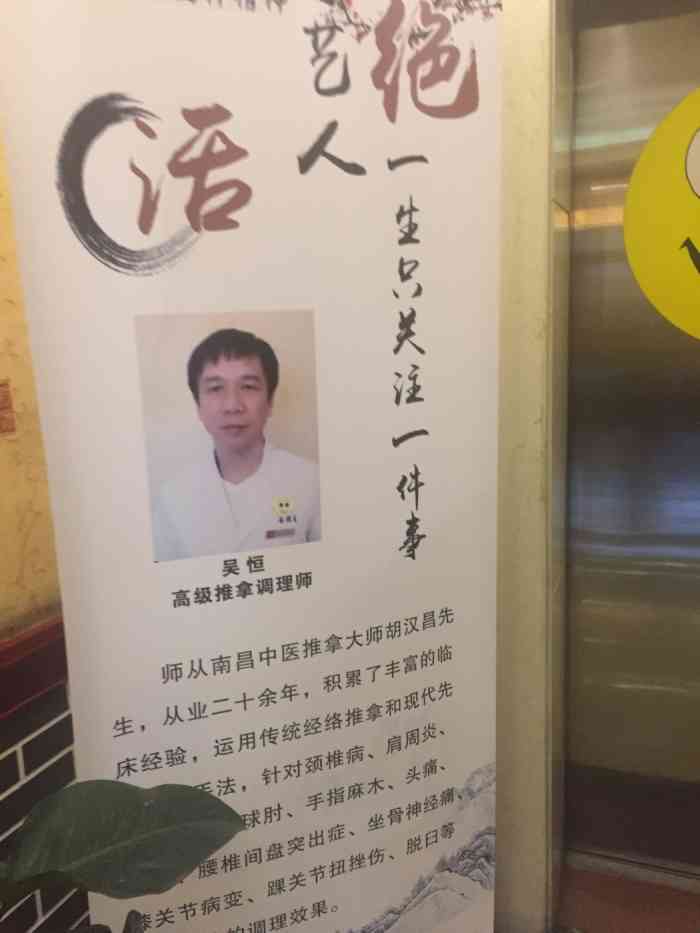 绝
活
艺人
一生只关注一件事
吴恒
高级推拿调理师
师从南昌中医推拿大师胡汉昌先
生，从业二十余年，积累了丰富的临
床经验，运用传统经络推拿和现代先
手法，针对颈椎病、肩周炎、
球肘、手指麻木、头痛、
腰椎间盘突出症、坐骨神经痛、
膝关节病变、踝关节扭挫伤、脱臼等
的调理效果。